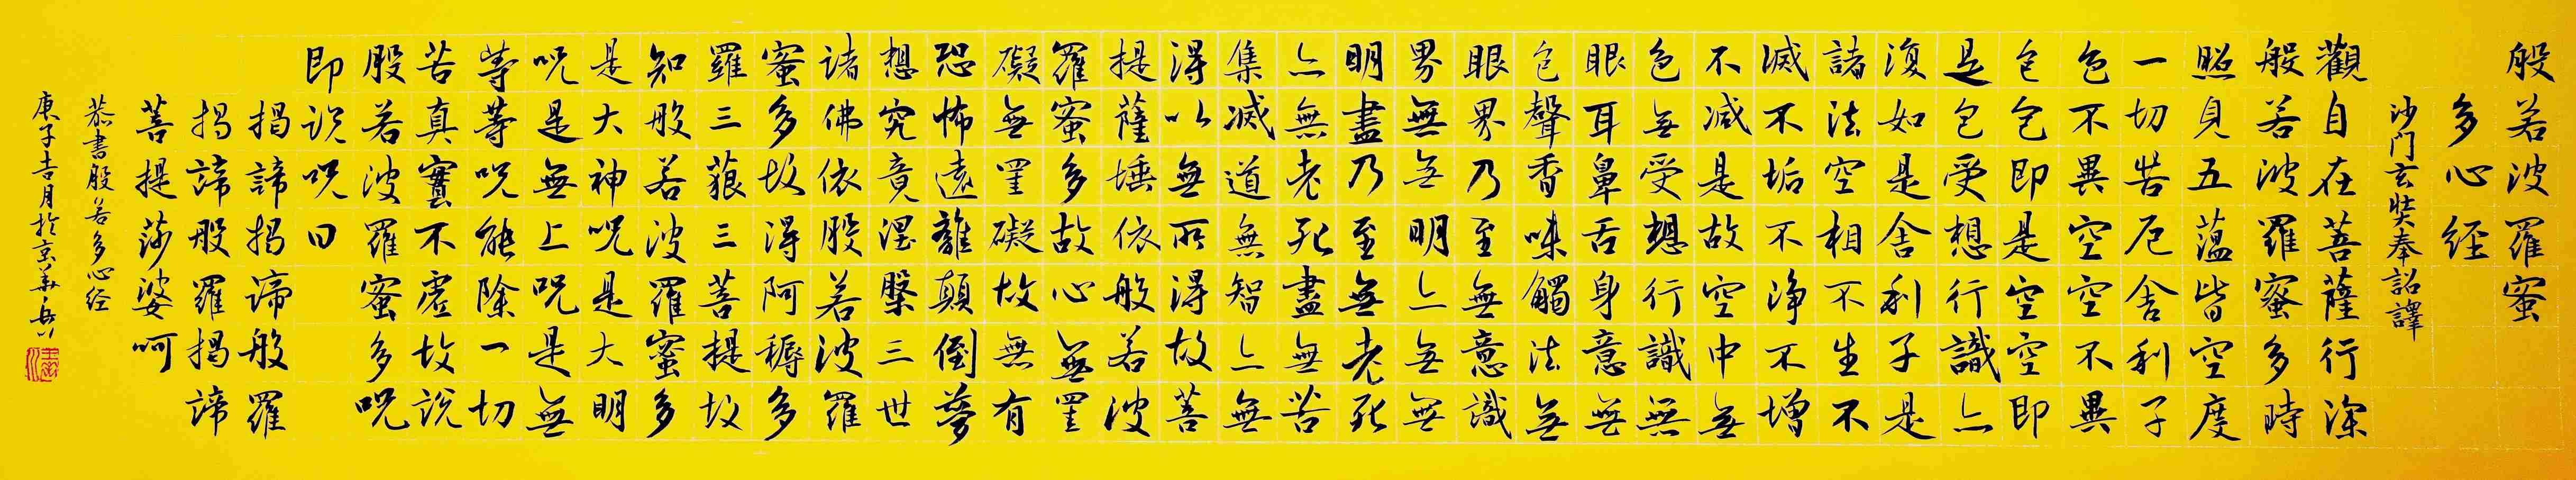 般若波羅蜜
多心经
沙门玄奘奉詔譯
觀自在菩薩行深
般若波羅蜜多時
照見五蘊皆空度
一切苦厄舍利子
色不異空空不異
色色即是空空即
是色受想行識亦
復如是舍利子是
諸法空相不生不
滅不垢不净不增
不減是故空中無
色無受想行識無
眼耳鼻舌身意無
色聲香味觸法無
眼界乃至無意識
界無無明亦無無
明盡乃至無老死
亦無老死盡無苦
集滅道無智亦無
得以無所得故菩
提薩埵依般若波
羅蜜多故心無罣
礙無罣礙故無有
恐怖遠離顛倒夢
想究竟涅槃三世
諸佛依般若波羅
蜜多故得阿耨多
羅三藐三菩提故
知般若波羅蜜多
是大神呪是大明
呪是無上呪是無
等等呪能除一切
苦真實不虛故説
般若波羅蜜多呪
即説呪曰
揭諦揭諦般羅
揭諦般羅揭諦
菩提莎婆呵
恭書般若多心经
庚子吉月於京華岳川